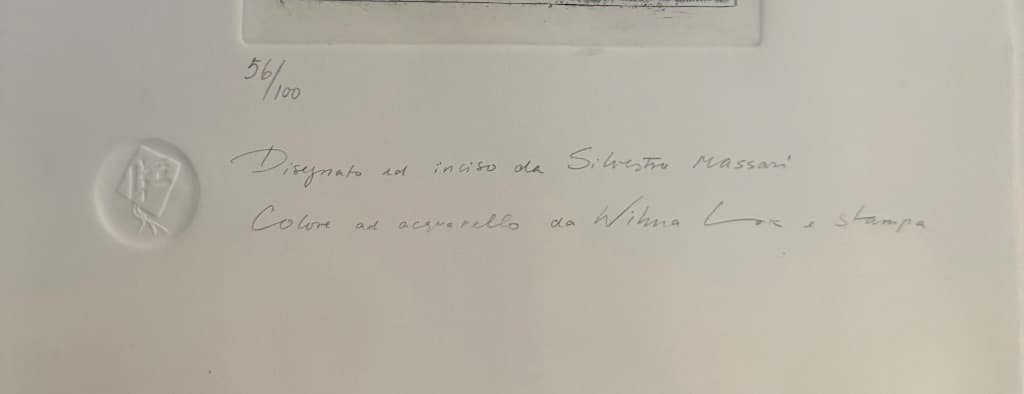 56/100
Disegnato ed inciso da Silvestro Massari
Colore ad acquarello da Wilma e stampa